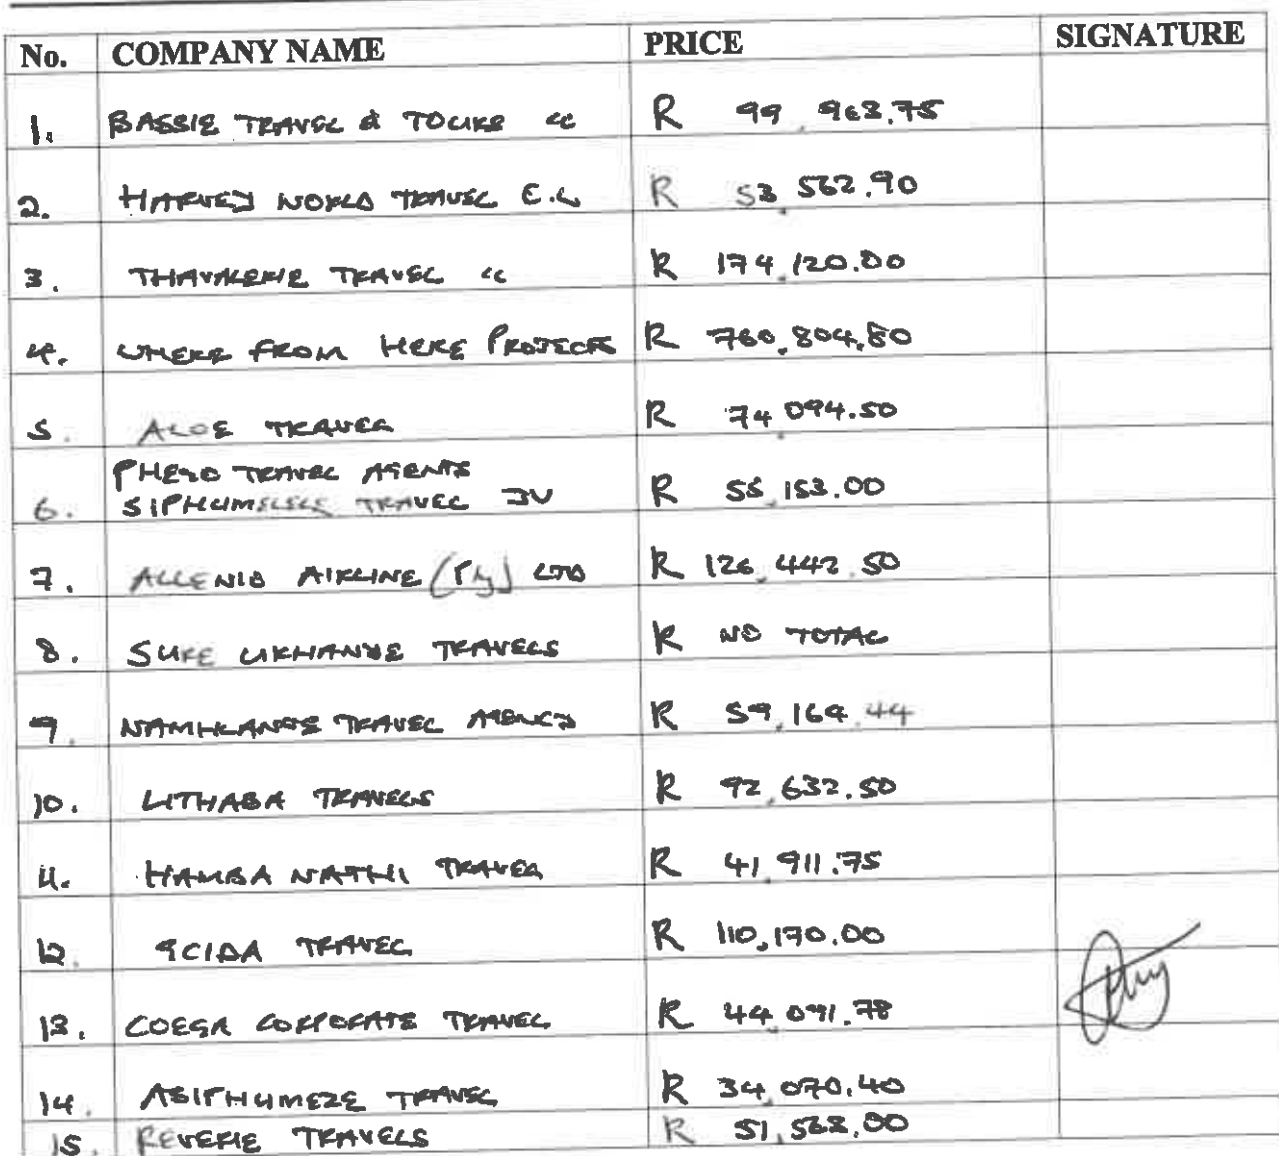 No. COMPANY NAME PRICE SIGNATURE
1. BASSIE TRAVEL & TOURS cc R 99,963.75
2. HARVEY WORLD TRAVEL E.L R 53,562.90
3. TRAVEL cc R 174,120.00
4. WHERE FROM HERE PROJECTS R 760,804.80
5. ALOE TRAVEL R 74,094.50
PHEZO TRAVEL AGENTS
6. SIPHUMELELE TRAVEL JV R 55,153.00
7. ALLENID AIRLINE (Pty) LTD R 126,442.50
8. SURE LIKHANYE TRAVELS R NO TOTAL
9. NAMHLANJE TRAVEL AGENCY R 59,164.44
10. LITHABA TRAVELS R 92,632.50
11. HAMBA NATHI TRAVEL R 41,911.75
12. TRAVEL R 110,170.00
13. COEGA CORPORATE TRAVEL R 44,091.78
14. ASIPHUMEZE TRAVEL R 34,070.40
15. REVERIE TRAVELS R